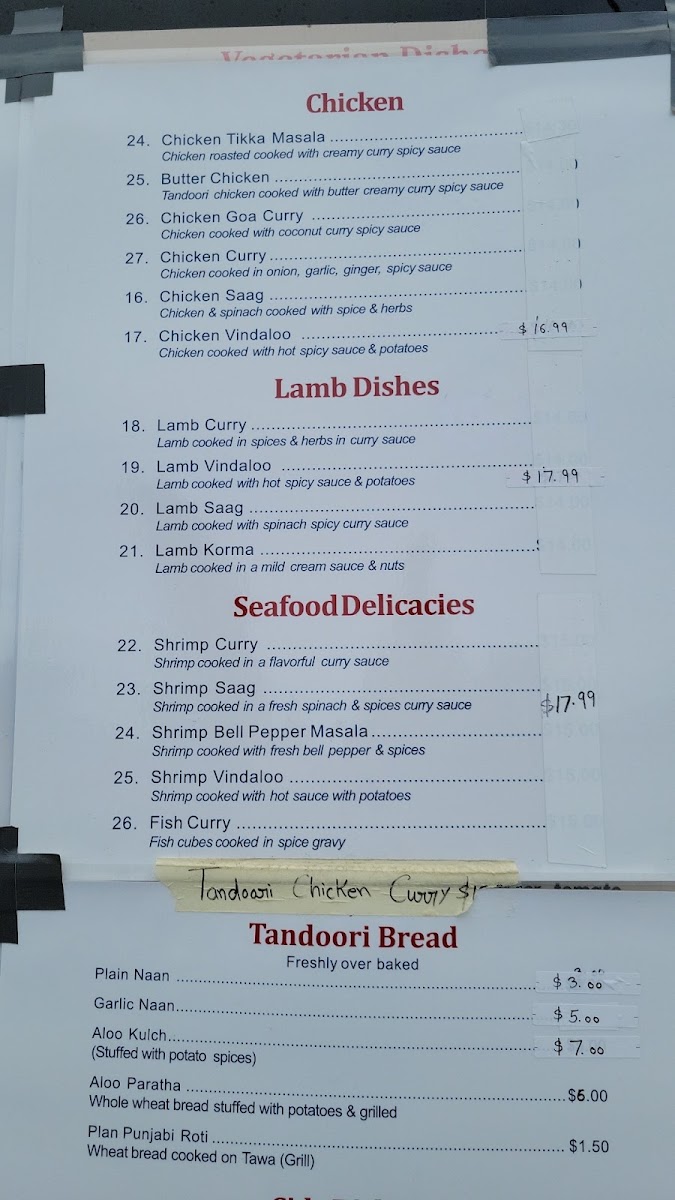 Vegetarian Dishe
Chicken
24. Chicken Tikka Masala
Chicken roasted cooked with creamy curry spicy sauce
25. Butter Chicken
Tandoori chicken cooked with butter creamy curry spicy sauce
26. Chicken Goa Curry
Chicken cooked with coconut curry spicy sauce
27. Chicken Curry
Chicken cooked in onion, garlic, ginger, spicy sauce
16. Chicken Saag
Chicken & spinach cooked with spice & herbs
17. Chicken Vindaloo $16.99
Chicken cooked with hot spicy sauce & potatoes
Lamb Dishes
18. Lamb Curry
Lamb cooked in spices & herbs in curry sauce
19. Lamb Vindaloo $17.99
Lamb cooked with hot spicy sauce & potatoes
20. Lamb Saag
Lamb cooked with spinach spicy curry sauce
21. Lamb Korma
Lamb cooked in a mild cream sauce & nuts
Seafood Delicacies
22. Shrimp Curry
Shrimp cooked in a flavorful curry sauce
23. Shrimp Saag $17.99
Shrimp cooked in a fresh spinach & spices curry sauce
24. Shrimp Bell Pepper Masala
Shrimp cooked with fresh bell pepper & spices
25. Shrimp Vindaloo
Shrimp cooked with hot sauce with potatoes
26. Fish Curry
Fish cubes cooked in spice gravy
Tandoori Chicken Curry
Tandoori Bread
Freshly over baked
Plain Naan $3.00
Garlic Naan $5.00
Aloo Kulch $7.00
(Stuffed with potato spices)
Aloo Paratha $6.00
Whole wheat bread stuffed with potatoes & grilled
Plan Punjabi Roti $1.50
Wheat bread cooked on Tawa (Grill)